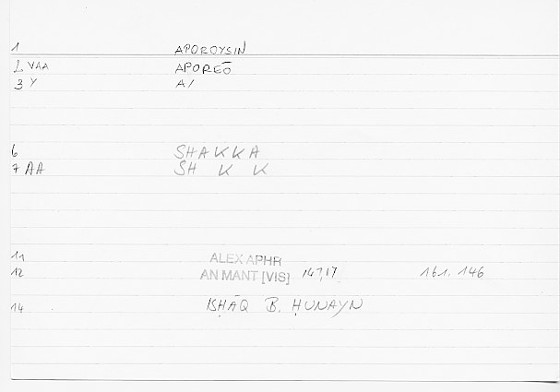 1 APOROYSIN
2 VAA APOREŌ
3 Y A/
6 SHAKKA
7 AA SH K K
11 ALEX APHR
12 AN MANT [VIS] 147,17 161.146
14 ISḤĀQ B. ḤUNAYN